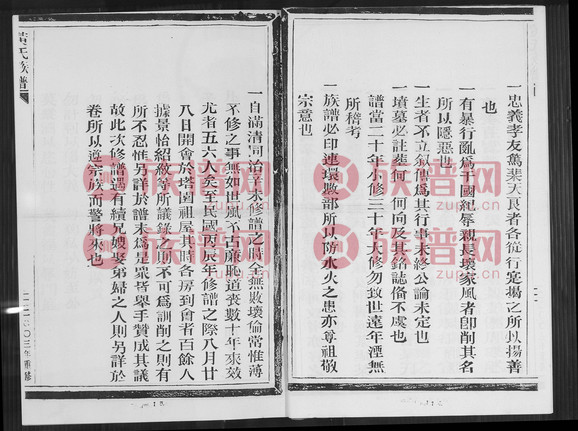 一忠義孝友篤棐天良者各從行寔揭之所以揚善
也
一有暴行亂為干國紀辱親長壞家風者卽削其名
所以隱惡也
一生者不立叙傳為其行事未終公論未定也
一墳墓必註葬何山何向及其銘誌俻不虞也
譜當二十年小修三十年大修勿致世遠年湮無
所稽考
一族譜必印連環數部所以防水火之患亦尊祖敬
宗意也
黃氏族譜
一自滿清同治辛未修譜之時全無敗壞倫常惟薄
不修之事無如世風不古廉恥道喪數十年來效
尤者五六人矣至民國丙辰年修譜之際八月廿
八日開會於塔園祖屋其時各房到會者百餘人
據景怡紹敘等所議錄之則不可為訓削之則有
所不忍惟另詳於譜末為是衆皆舉手贊成其議
故此次修譜遇有續兄嫂娶弟婦之人則另詳於
卷所以遵宗族而警將來也
二〇〇三年重修
族譜网
zupu.cn